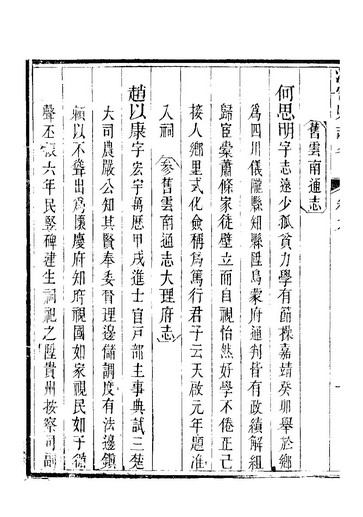 舊雲南通志
何思明字志遠少孤貧力學有節操嘉靖癸卯舉於鄉
爲四川儀隴縣知縣陞烏蒙府通判皆有政績解組
歸宦橐蕭條家徒壁立而自視怡然好學不倦正己
接人鄉里式化僉稱爲篤行君子云天啟元年題准
入祠 參舊雲南通志大理府志
趙以康字宏宇萬歷甲戌進士官戶部主事典試三楚
大司農嚴公知其賢奉委督理邊儲調度有法邊鎮
賴以不聳出爲懷慶府知府視國如家視民如子徽
聲丕振六年民堅碑建生祠祝之陞貴州按察司副